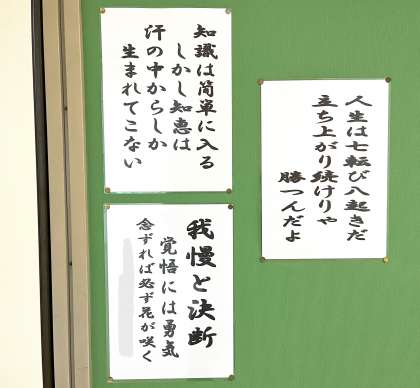 知識は簡単に入る
しかし知恵は
汗の中からしか
生まれてこない
我慢と決断
覚悟には勇気
念ずれば必ず花が咲く
人生は七転び八起きだ
立ち上がり続けりゃ
勝つんだよ